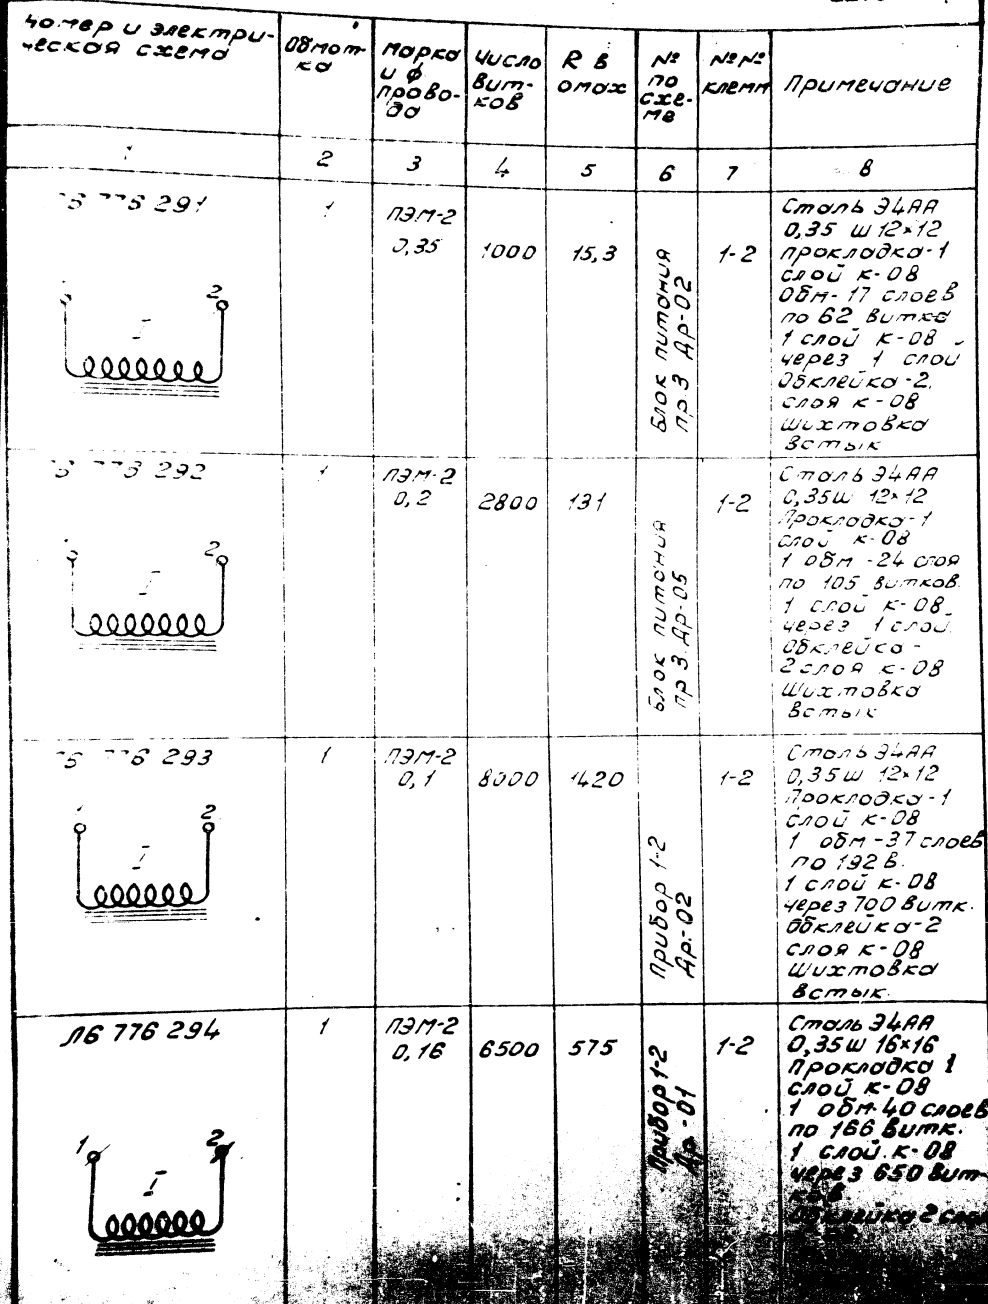 Номер и электри-
ческая схема
Обмот-
ка
Марка
и ф
прово-
да
Число
вит-
ков
R в
омах
№
по
схе-
ме
№№
клемм
Примечание
2
3
4
5
6
7
8
776 291
1
ПЭМ-2
0,35
1000
15,3
Блок питания
пр.3 Др-02
1-2
Сталь Э4АА
0,35 Ш 12×12
прокладка-1
слой к-08
Обм- 17 слоев
по 62 витка
1 слой к-08
через 1 слой
Обклейка-2
слоя к-08
Шихтовка
встык
2
I
776 292
1
ПЭМ-2
0,2
2800
131
Блок питания
пр 3. Др-05
1-2
Сталь Э4АА
0,35Ш 12×12
Прокладка-1
слой к-08
1 обм -24 слоя
по 105 витков.
1 слой к-08
через 1 слой.
Обклейка-
2 слоя к-08
Шихтовка
встык
2
I
776 293
1
ПЭМ-2
0,1
8000
1420
Прибор 1-2
Др.-02
1-2
Сталь Э4АА
0,35Ш 12×12
Прокладка-1
слой к-08
1 обм -37 слоев
по 192 в.
1 слой к-08
через 700 витк.
Обклейка-2
слоя к-08
Шихтовка
встык.
1 2
I
Л6 776 294
1
ПЭМ-2
0,16
6500
575
Прибор 1-2
Др.-01
1-2
Сталь Э4АА
0,35Ш 16×16
Прокладка 1
слой к-08
1 обм-40 слоев
по 166 витк.
1 слой. к-08
через 650 вит-
ков
Обклейка 2 слоя
1 2
I